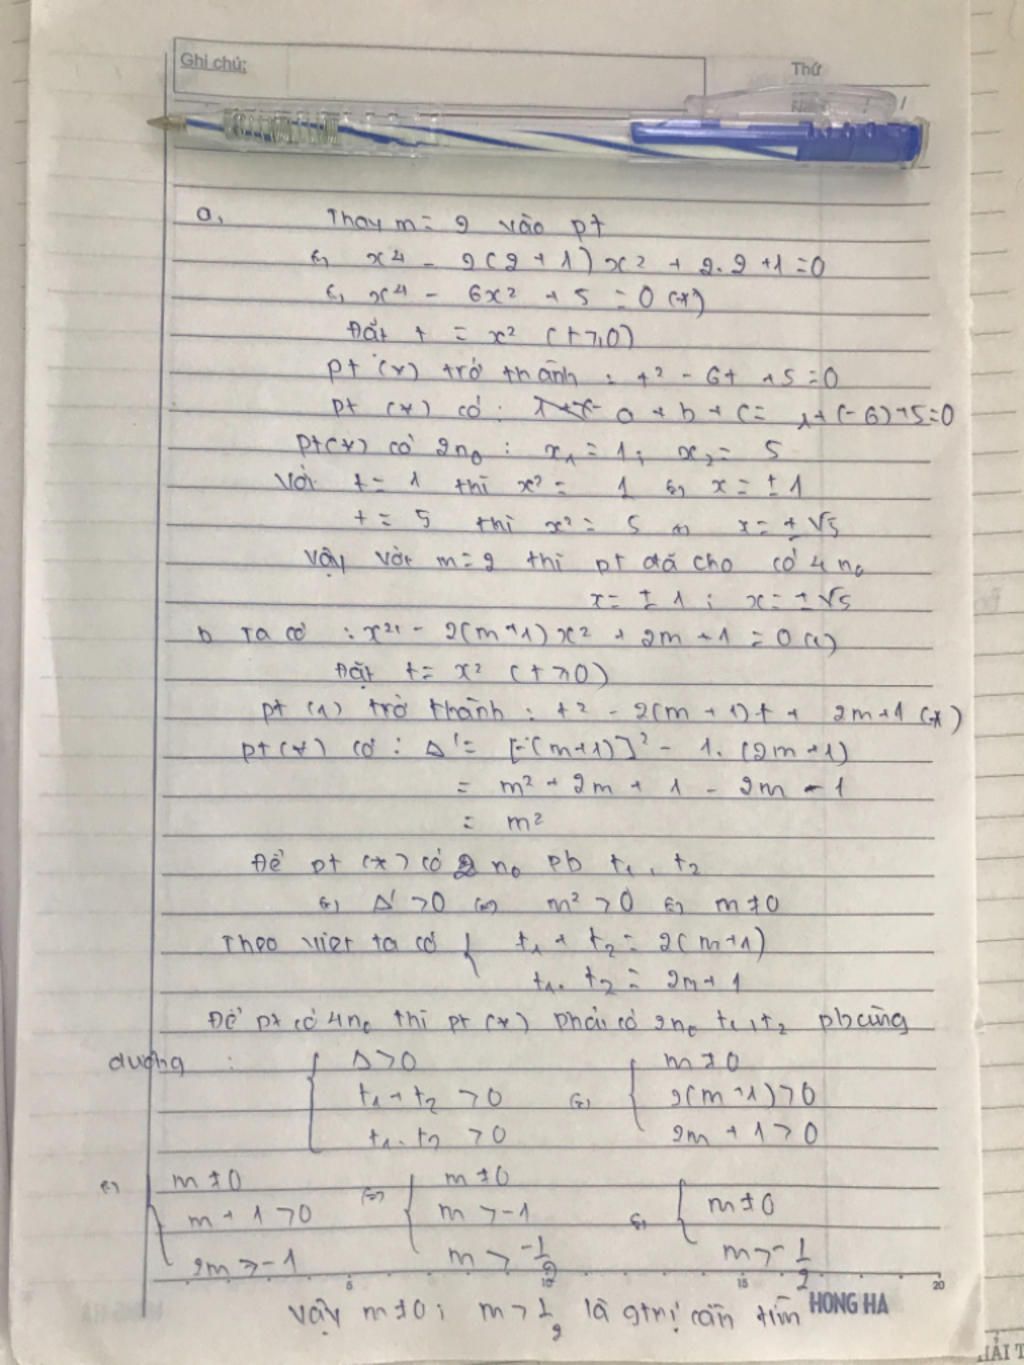 Ghi chú:
Thứ
a, Thay m = 2 vào pt
⇔ x⁴ - 2(2 + 1)x² + 2.2 + 1 = 0
⇔ x⁴ - 6x² + 5 = 0 (*)
Đặt t = x² (t ≥ 0)
pt (*) trở thành : t² - 6t + 5 = 0
pt (*) có : a + b + c = 1 + (-6) + 5 = 0
pt (*) có 2 n₀ : x₁ = 1 ; x₂ = 5
Với t = 1 thì x² = 1 ⇔ x = ± 1
t = 5 thì x² = 5 ⇔ x = ± √5
Vậy với m = 2 thì pt đã cho có 4 n₀
x = ± 1 ; x = ± √5
b Ta có : x⁴ - 2(m + 1)x² + 2m + 1 = 0 (1)
Đặt t = x² (t ≥ 0)
pt (1) trở thành : t² - 2(m + 1)t + 2m + 1 (*)
pt (*) có : Δ' = [-(m+1)]² - 1. (2m + 1)
= m² + 2m + 1 - 2m - 1
= m²
Để pt (*) có 2 n₀ pb t₁, t₂
⇔ Δ' > 0 ⇔ m² > 0 ⇔ m ≠ 0
Theo viet ta có { t₁ + t₂ = 2(m + 1)
t₁. t₂ = 2m + 1
Để pt có 4 n₀ thì pt (*) phải có 2 n₀ t₁, t₂ pb cùng
dương : { Δ > 0 ⇔ { m ≠ 0
t₁ + t₂ > 0 2(m + 1) > 0
t₁. t₂ > 0 2m + 1 > 0
⇔ { m ≠ 0 ⇔ { m ≠ 0 ⇔ { m ≠ 0
m + 1 > 0 m > -1
2m > -1 m > -1/2 m > -1/2
5 10 15 20
Vậy m ≠ 0 ; m > 1/2 là gtrị cần tìm HONG HA